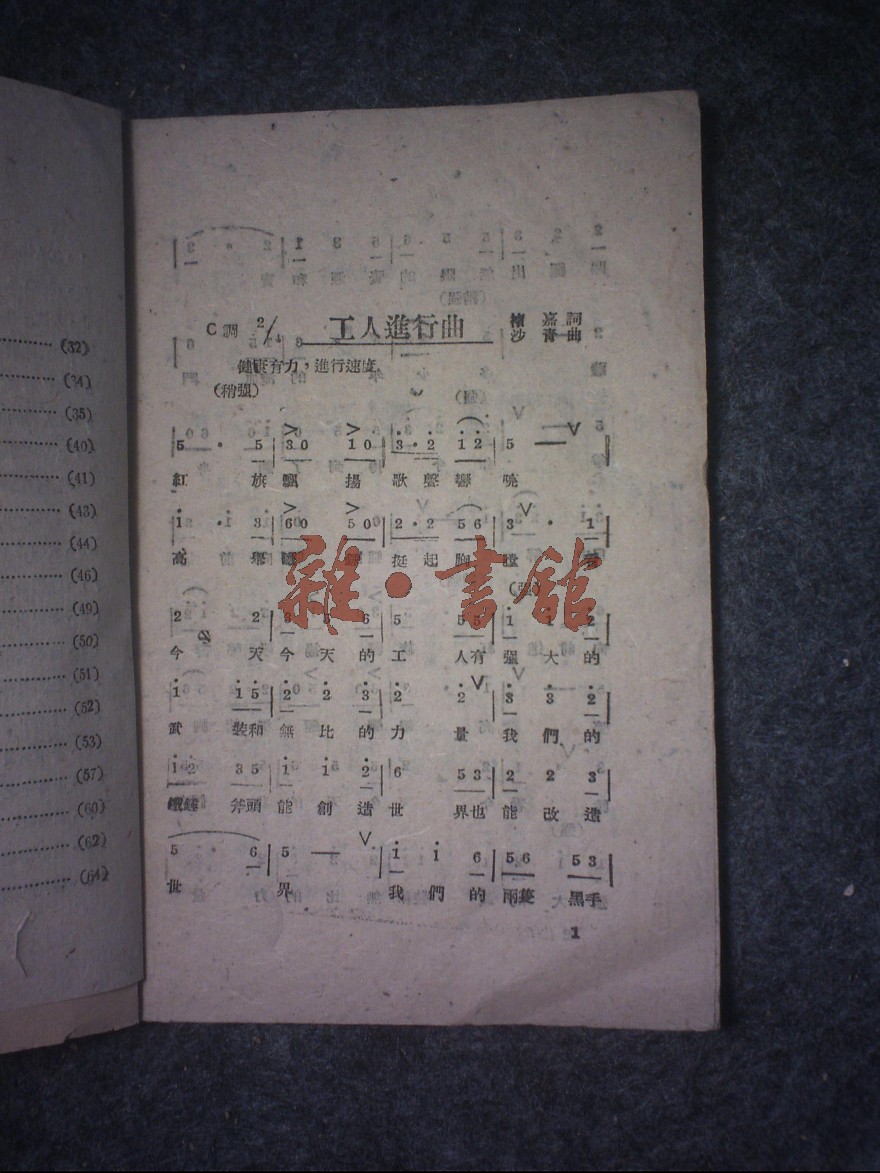 (32)
(34)
(35)
(40)
(41)
(43)
(44)
(46)
(49)
(50)
(51)
(52)
(53)
(57)
(60)
(62)
(64)
工人進行曲
C調 2/4
嘉詞
沙青曲
健康有力，進行速度
(稍強)
5 · 5 | 3 0 1 0 | 3 · 2 1 2 | 5 —
紅 旗 飄 揚 歌 聲 響 亮
1 · 3 | 6 0 5 0 | 2 · 2 5 6 | 3 · 1
高 舉 挺 起 胸 膛
(強)
2 2 | 3 5 6 | 5 5 5 | 1 1 2
今 天 今 天 的 工 人有 強 大 的
1 1 5 | 2 2 3 | 2 2 | 3 3 2
武 裝和 無 比 的 力 量 我 們 的
1 2 3 5 | 1 1 2 | 6 5 3 | 2 2 3
斧頭 能 創 造 世 界也 能 改 造
5 6 | 5 — | 1 1 6 | 5 6 5 3
世 界 我 們 的 兩隻 黑手
1
雜·書館